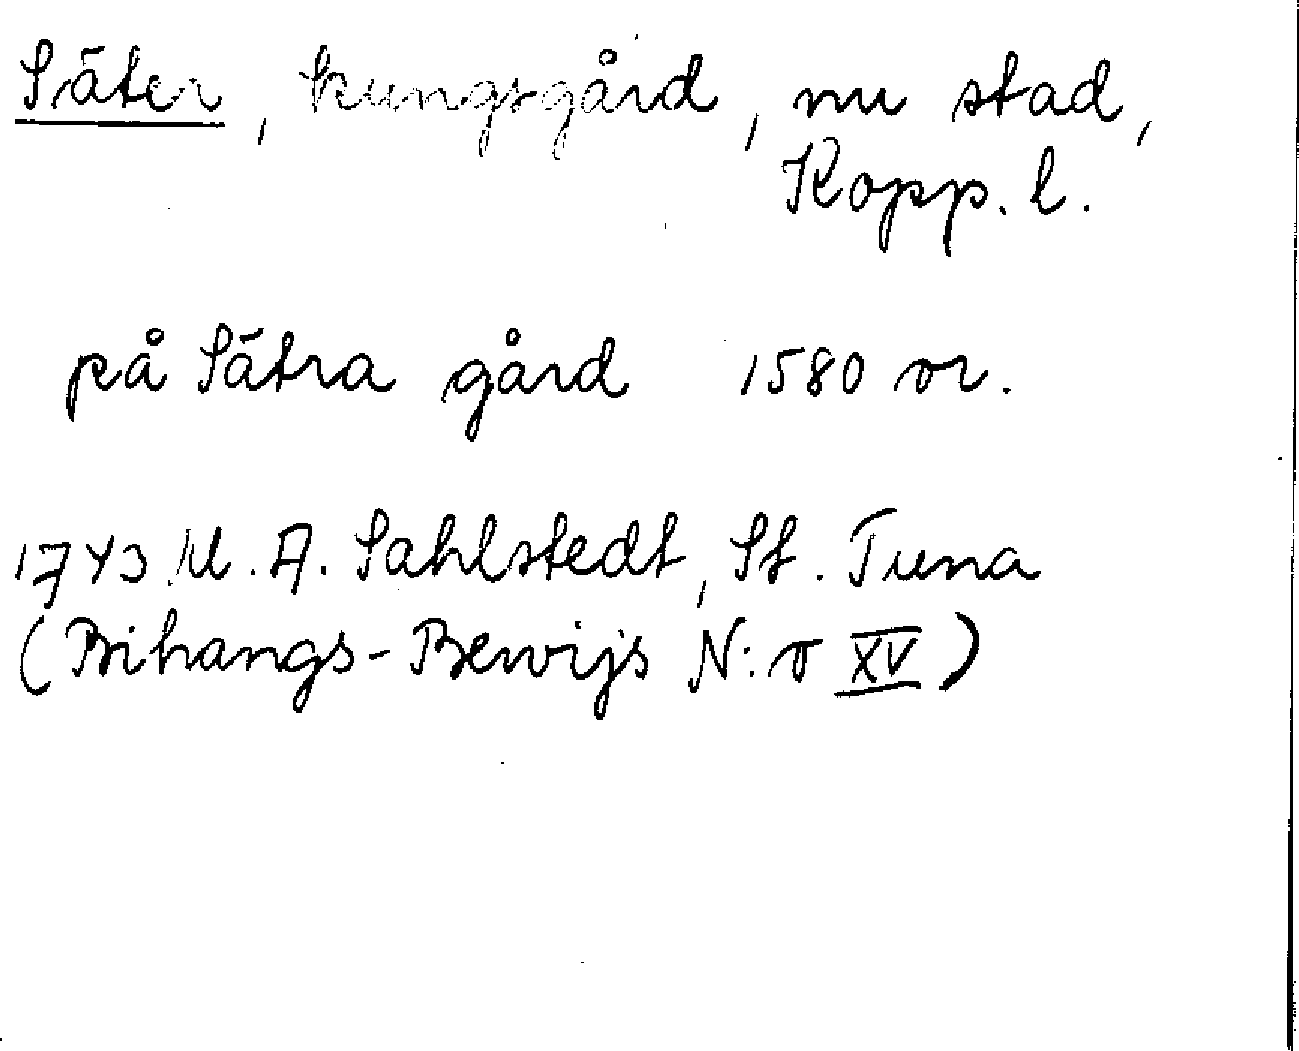 Säter, kungsgård, nu stad,
Kopp. l.
på Sätra gård 1580 or.
1743 M. A. Sahlstedt, St. Tuna
(Bihangs-Bewijs N:o XV)